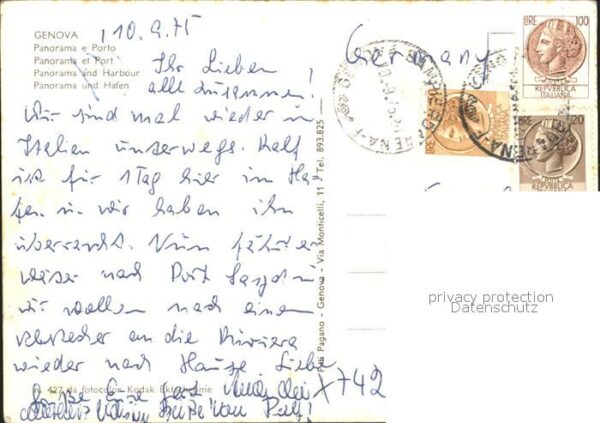 GENOVA
Panorama e Porto
Panorama et Port
Panorama and Harbour
Panorama und Hafen
10.9.75
Ihr Lieben
alle zusammen!
Wir sind mal wieder in
Italien unterwegs. Ralf
ist für 1 Tag hier im Ha-
fen u. wir haben ihn
überrascht. Nun fährt er
weiter nach Port Said u.
wir wollen nach einem
Abstecher an die Riviera
wieder nach Hause. Liebe
Grüße Eure
n. 427 da fotocolor Kodak Ektachrome
X742
Pagano - Genova - Via Monticelli, 11 - Tel. 893.825
Germany
LIRE 100
POSTE
REPVBBLICA
ITALIANA
LIRE
LIRE 20
POSTE
REPVBBLICA
privacy protection
Datenschutz